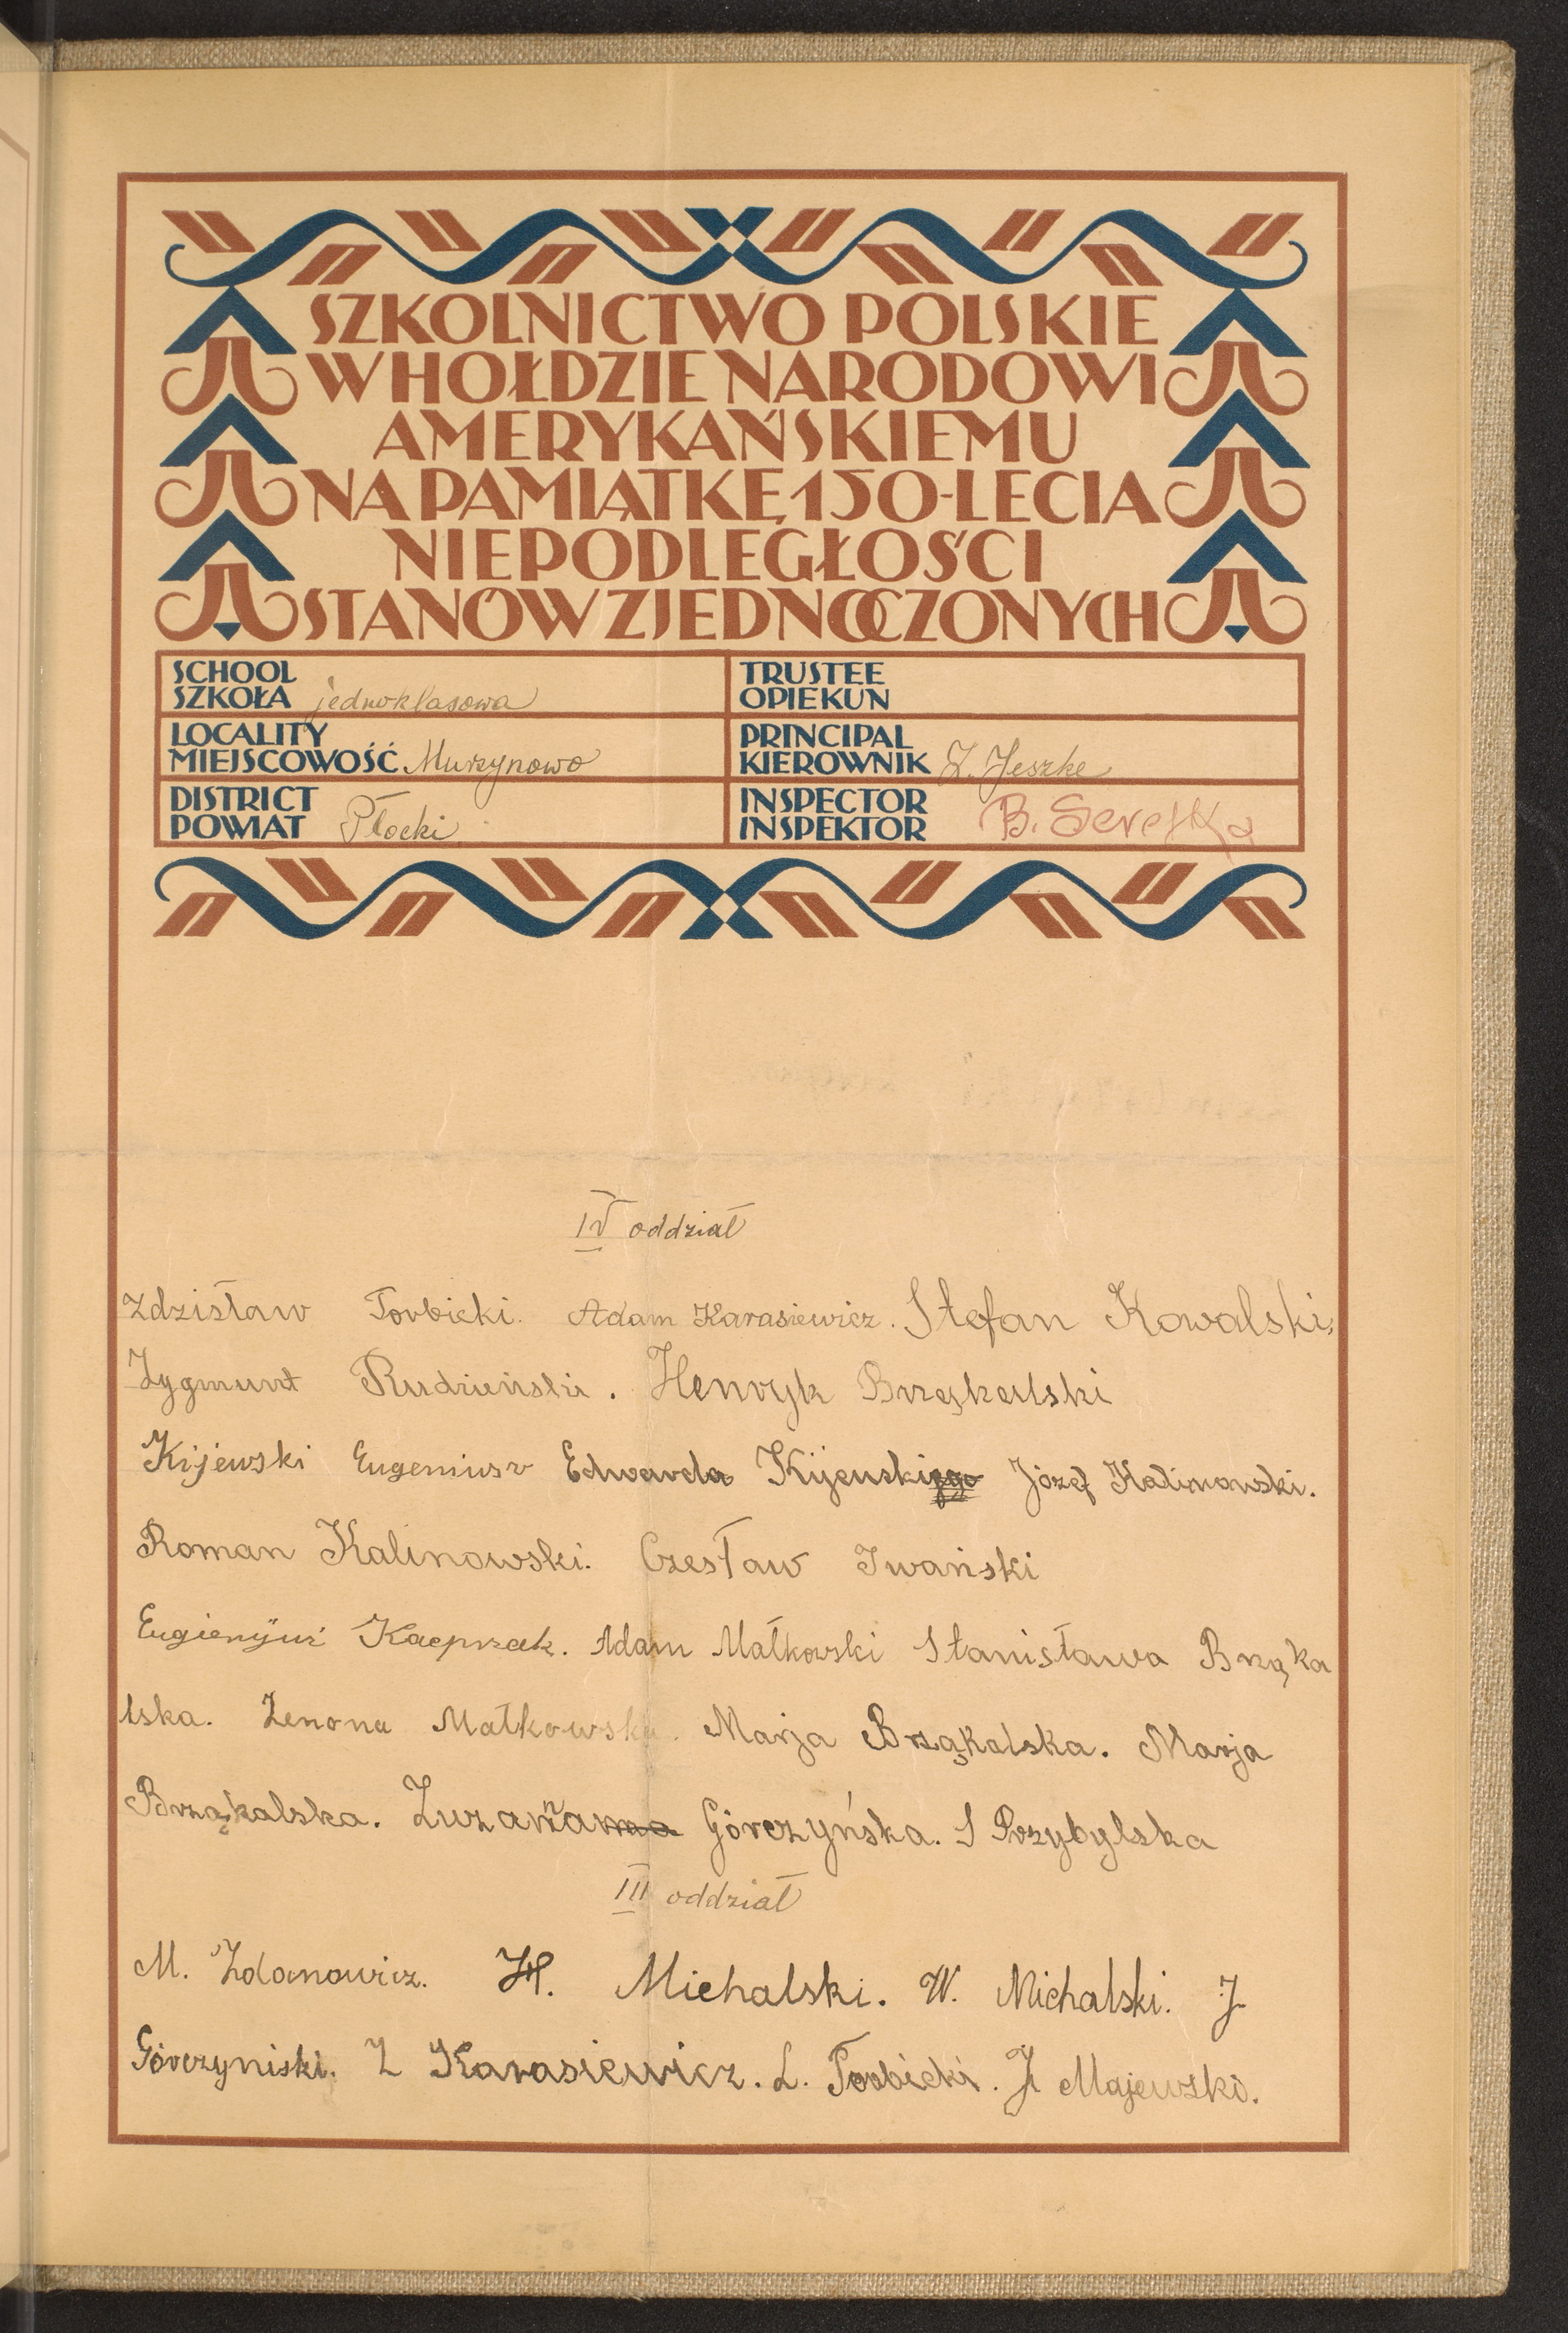 SZKOLNICTWO POLSKIE
W HOŁDZIE NARODOWI
AMERYKAŃSKIEMU
NA PAMIĄTKĘ 150-LECIA
NIEPODLEGŁOŚCI
STANÓW ZJEDNOCZONYCH
SCHOOL
SZKOŁA jednoklasowa
TRUSTEE
OPIEKUN
LOCALITY
MIEJSCOWOŚĆ Murzynowo
PRINCIPAL
KIEROWNIK Z. Jeszke
DISTRICT
POWIAT Płocki
INSPECTOR
INSPEKTOR B.Serejka
IV oddział
Zdzisław Torbicki. Adam Karasiewicz. Stefan Kowalski.
Zygmunt Rudzieński. Henryk Brząkalski
Kijewski Eugeniusz Edwarda Kijewskiego Józef Kalinowski.
Roman Kalinowski. Czesław Iwański
Eugienjusz Kacprzak. Adam Małkowski Stanisława Brząka
lska. Zenona Małkowska. Marja Brząkalska. Marja
Brząkalska. Zuzanna Górczyńska. S Przybylska
III oddział
M. Zdanowicz. H. Michalski. W. Michalski. J
Górczyniski. Z Karasiewicz. L. Torbicki. J Majewski.